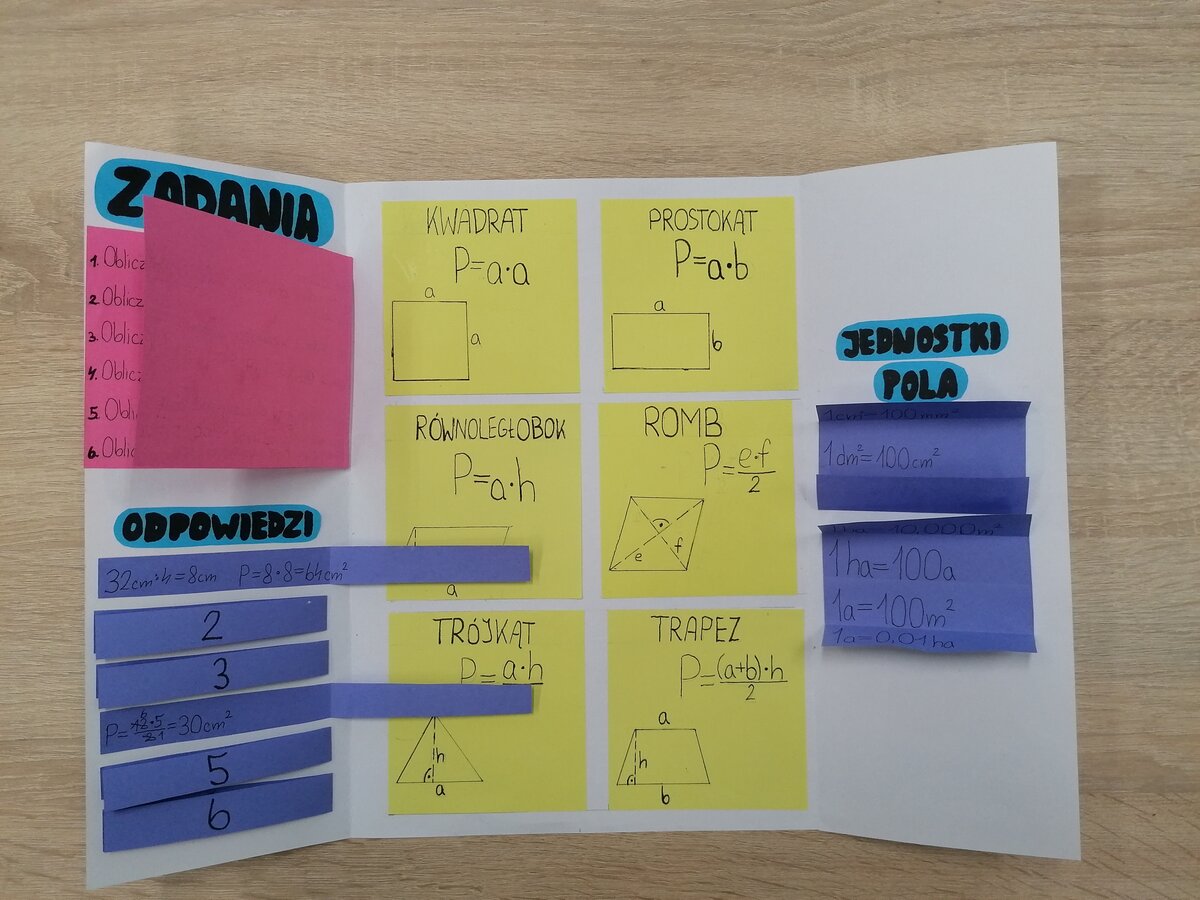 ZADANIA
1. Oblicz
2. Oblicz
3. Oblicz
4. Oblicz
5. Obli
6. Oblic
ODPOWIEDZI
32cm:4=8cm P=8·8=64cm²
2
3
P= ·5 =30cm²
5
6
KWADRAT
P=a·a
a
a
PROSTOKĄT
P=a·b
a
b
RÓWNOLEGŁOBOK
P=a·h
a
ROMB
P=e·f/2
e f
TRÓJKĄT
P=a·h
h
a
TRAPEZ
P=(a+b)·h/2
a
h
b
JEDNOSTKI
POLA
1cm²=100mm²
1dm²=100cm²
1ha=10.000m²
1ha=100a
1a=100m²
1a=0,01ha